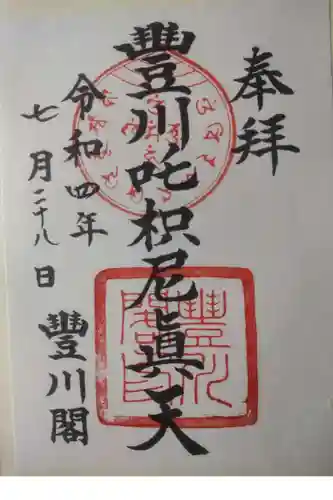 奉拝
豐川吒枳尼眞天
令和四年
七月二十八日
豐川閣